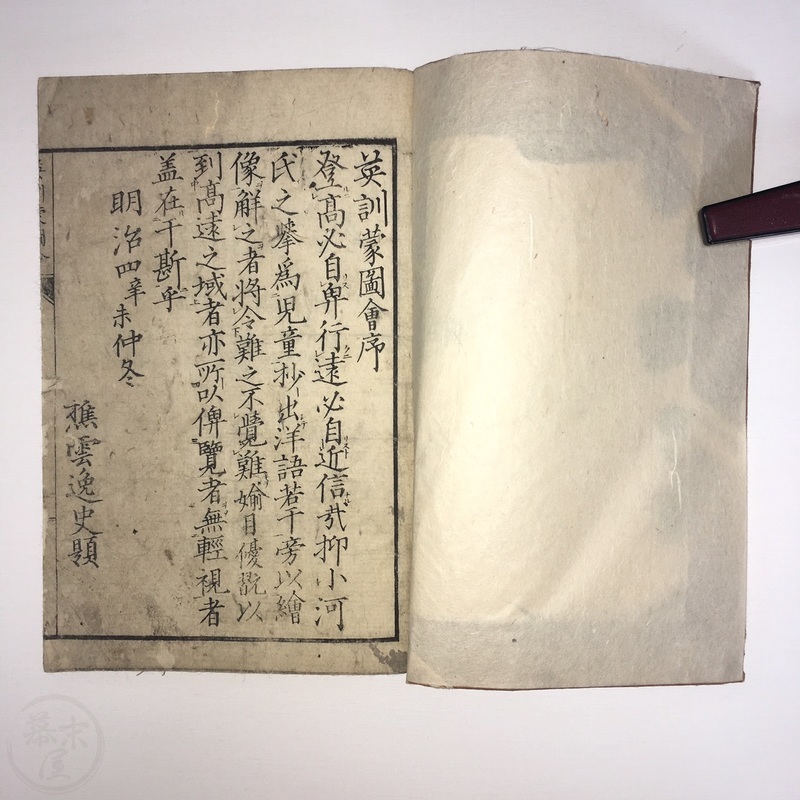 英訓蒙圖會序
登髙必自卑行遠必自近信哉抑小河
氏之擧爲児童抄出洋語若干旁以繪
像解之者将令難之不覺難媮日優翫以
到髙遠之域者亦所以俾覽者無輕視者
盖在于斯乎
明治四辛未仲冬
樵雲逸史題
幕末屋